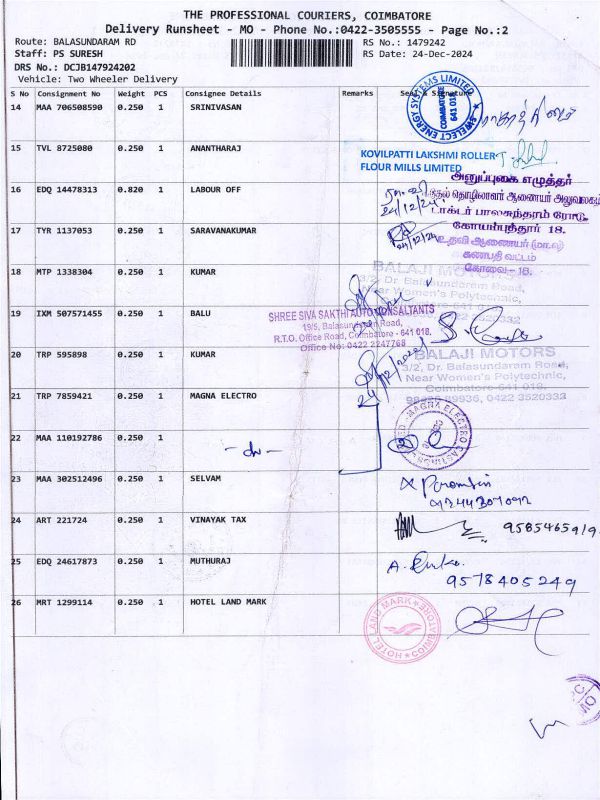 THE PROFESSIONAL COURIERS, COIMBATORE
Delivery Runsheet - MO - Phone No.:0422-3505555 - Page No.:2
Route: BALASUNDARAM RD
RS No.: 1479242
Staff: PS SURESH
RS Date: 24-Dec-2024
DRS No.: DCJB147924202
Vehicle: Two Wheeler Delivery
S No Consignment No Weight PCS Consignee Details Remarks Seal & Signature
14 MAA 706508590 0.250 1 SRINIVASAN
ELECT ENERGY SYSTEMS LIMITED
COIMBATORE
641 018
15 TVL 8725080 0.250 1 ANANTHARAJ
KOVILPATTI LAKSHMI ROLLER
FLOUR MILLS LIMITED
16 EDQ 14478313 0.820 1 LABOUR OFF
24/12/24
அனுப்புகை எழுத்தர்
தொழிலாளர் ஆணையர் அலுவலகம்
டாக்டர் பாலசுந்தரம் ரோடு
கோயம்புத்தூர் 18.
17 TYR 1137053 0.250 1 SARAVANAKUMAR
24/12/24
உதவி ஆணையர்
கணபதி வட்டம்
கோவை - 18.
18 MTP 1338304 0.250 1 KUMAR
BALAJI MOTORS
3/2, Dr. Balasundaram Road,
Near Women's Polytechnic,
Coimbatore-641 018.
19 IXM 507571455 0.250 1 BALU
SHREE SIVA SAKTHI AUTO CONSULTANTS
19/5, Balasundaram Road,
R.T.O. Office Road, Coimbatore - 641 018.
Office No: 0422 2247768
20 TRP 595898 0.250 1 KUMAR
BALAJI MOTORS
3/2, Dr. Balasundaram Road,
Near Women's Polytechnic,
Coimbatore-641 018.
99936, 0422 3520332
21 TRP 7859421 0.250 1 MAGNA ELECTRO
MAGNA ELECTRO CASTINGS
22 MAA 110192786 0.250 1
23 MAA 302512496 0.250 1 SELVAM
24 ART 221724 0.250 1 VINAYAK TAX
25 EDQ 24617873 0.250 1 MUTHURAJ
9578405249
26 MRT 1299114 0.250 1 HOTEL LAND MARK
HOTEL LAND MARK
COIMBATORE